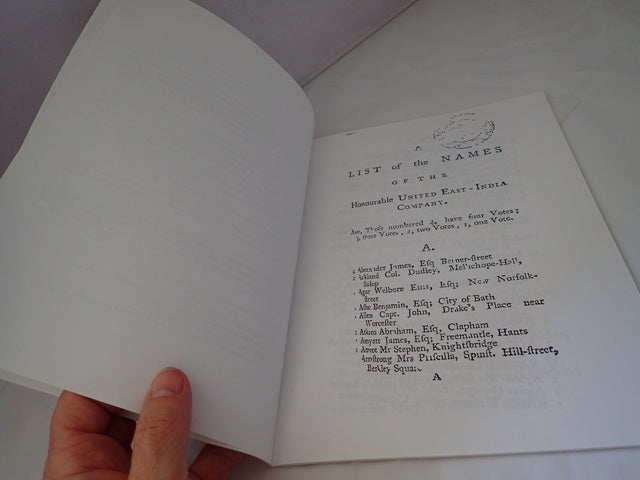 A
LIST of the NAMES
OF THE
Honourable UNITED EAST-INDIA
COMPANY.
Those numbered 4, have four Votes;
3, three Votes, 2, two Votes, 1, one Vote.
A.
Alexander James, Esq Berner-ſtreet
Ackland Col. Dudley, Mellichope-Hall,
Salop
Agar Welbore Ellis, Eſq; New Norfolk-
ſtreet
Aſhe Benjamin, Eſq; City of Bath
Allen Capt. John, Drake's Place near
Worceſter
Atkins Abraham, Eſq. Clapham
Amyatt James, Eſq; Freemantle, Hants
Amiot Mr Stephen, Knightſbridge
Armſtrong Mrs Priſcilla, Spinſt. Hill-ſtreet,
Berkley Square
A